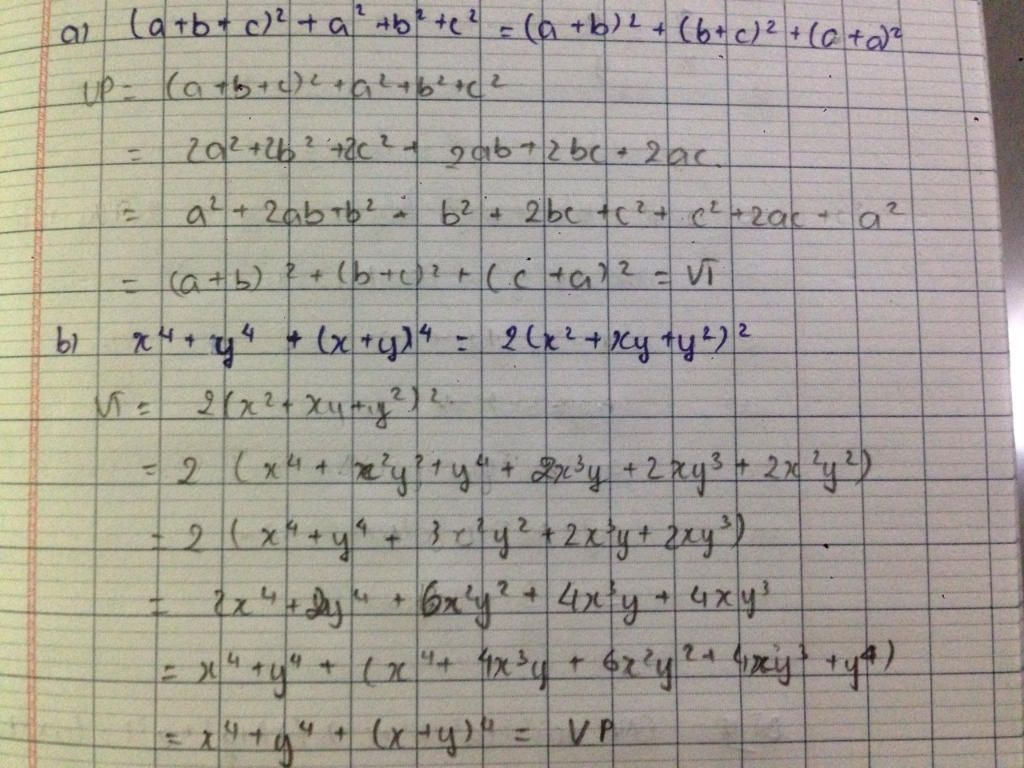 a) (a+b+c)² + a² + b² + c² = (a+b)² + (b+c)² + (c+a)²
VP = (a+b+c)² + a² + b² + c²
= 2a² + 2b² + 2c² + 2ab + 2bc + 2ac.
= a² + 2ab + b² + b² + 2bc + c² + c² + 2ac + a²
= (a+b)² + (b+c)² + (c+a)² = VT
b) x⁴ + y⁴ + (x+y)⁴ = 2(x² + xy + y²)²
VT = 2(x² + xy + y²)²
= 2 (x⁴ + x²y² + y⁴ + 2x³y + 2xy³ + 2x²y²)
= 2 (x⁴ + y⁴ + 3x²y² + 2x³y + 2xy³)
= 2x⁴ + 2y⁴ + 6x²y² + 4x³y + 4xy³
= x⁴ + y⁴ + (x⁴ + 4x³y + 6x²y² + 4xy³ + y⁴)
= x⁴ + y⁴ + (x+y)⁴ = VP